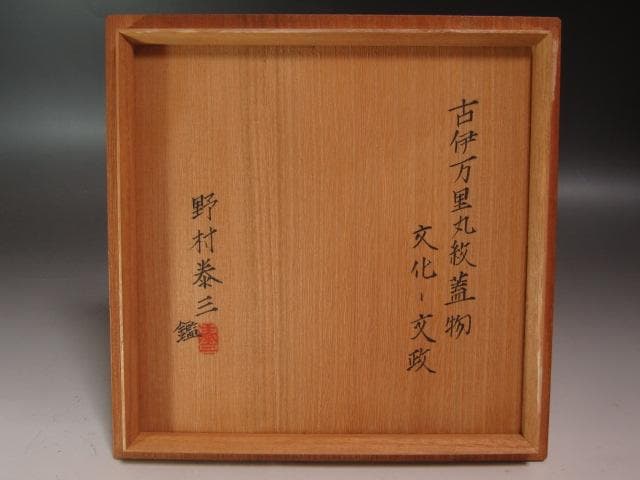 古伊万里丸紋蓋物
文化〜文政
野村泰三
鑑